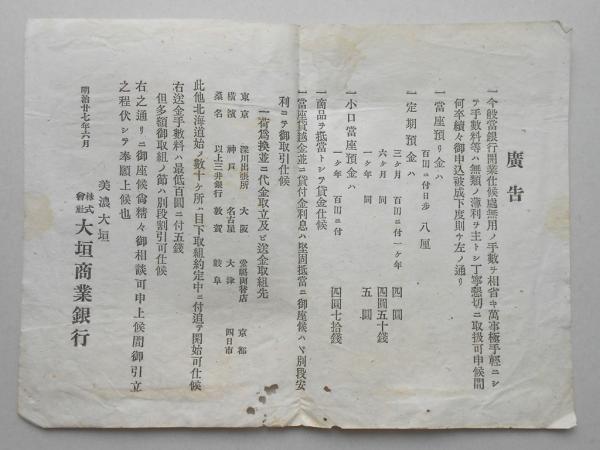 廣告
一今般當銀行開業仕候處無用ノ手數ヲ相省キ萬事極手輕ニシ
テ手數料等ハ無類ノ薄利ヲ主トシ丁寧懇切ニ取扱可申候間
何卒續々御申込被成下度則ケ左ノ通リ
一當座預リ金ハ
百圓ニ付日歩 八厘
一定期預金ハ
三ケ月 百圓ニ付一ケ年 四圓
六ケ月 同 四圓五十錢
一ケ年 同 五圓
一小口當座預金ハ
一ケ年 百圓ニ付 四圓七拾錢
一商品ヲ抵當トシテ貸金仕候
一當座貸越金並ニ貸付金利息ハ堅固抵當ニ御座候ハヾ別段安
利ニテ御取引仕候
一荷爲換並ニ代金取立及ビ送金取組先
東京 深川出張所 大阪 堂嶋両替店 京都
橫濱 神戶 名古屋 大津 四日市
桑名 以上三井銀行 敦賀 岐阜
此他北海道始メ數十ケ所ハ目下取組約定中ニ付追テ開始可仕候
右送金手數料ハ最低百圓ニ付五錢
但多額御取組ノ節ハ別段割引可仕候
右之通リニ御座候尙精々御相談可申上候間御引立
之程伏シテ奉願上候也
明治廿七年六月
美濃大垣
株式會社 大垣商業銀行